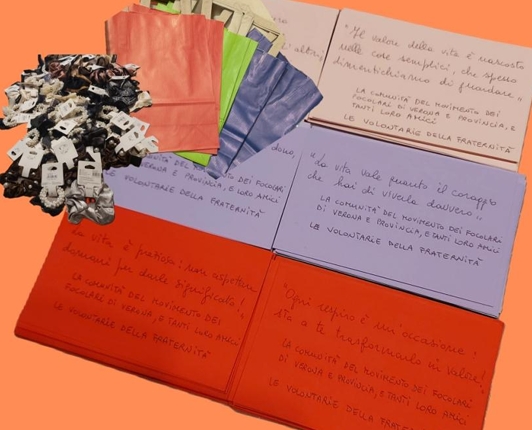 l'altro,
"Il valore della vita è nascosto
nelle cose semplici, che spesso
dimentichiamo di guardare."
LA COMUNITÀ DEL MOVIMENTO DEI
FOCOLARI DI VERONA E PROVINCIA, E
TANTI LORO AMICI
LE VOLONTARIE DELLA FRATERNITÀ
dono,
DEL MOVIMENTO DEI FOCOLARI
DI VERONA E PROVINCIA, E LORO AMICI
LE VOLONTARIE DELLA FRATERNITÀ
"La vita vale quanto il coraggio
che hai di viverla davvero"
LA COMUNITÀ DEL MOVIMENTO DEI FOCOLARI
DI VERONA E PROVINCIA, E TANTI LORO AMICI
LE VOLONTARIE DELLA FRATERNITÀ
La vita è preziosa: non aspettare
domani per darle significato!
LA COMUNITÀ DEL MOVIMENTO DEI
FOCOLARI DI VERONA, E TANTI LORO AMICI
LE VOLONTARIE DELLA FRATERNITÀ
"Ogni respiro è un'occasione:
sta a te trasformarlo in valore!
LA COMUNITÀ DEL MOVIMENTO DEI FOCOLARI
DI VERONA E PROVINCIA, E TANTI LORO AMICI
LE VOLONTARIE DELLA FRATERNITÀ